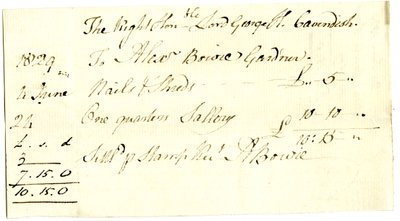 The Right Hon.ble Lord George H. Cavendish.
1829 To Alexr Bowie Gardner.
4 June Nails & Shreds £ " 5 "
24 One quarters Sallery 10 10 "
£ . s . d £ 10 : 15 "
3 Settd pr Stamp Rec.t A Bowie
7 . 15 . 0
10 . 15 . 0